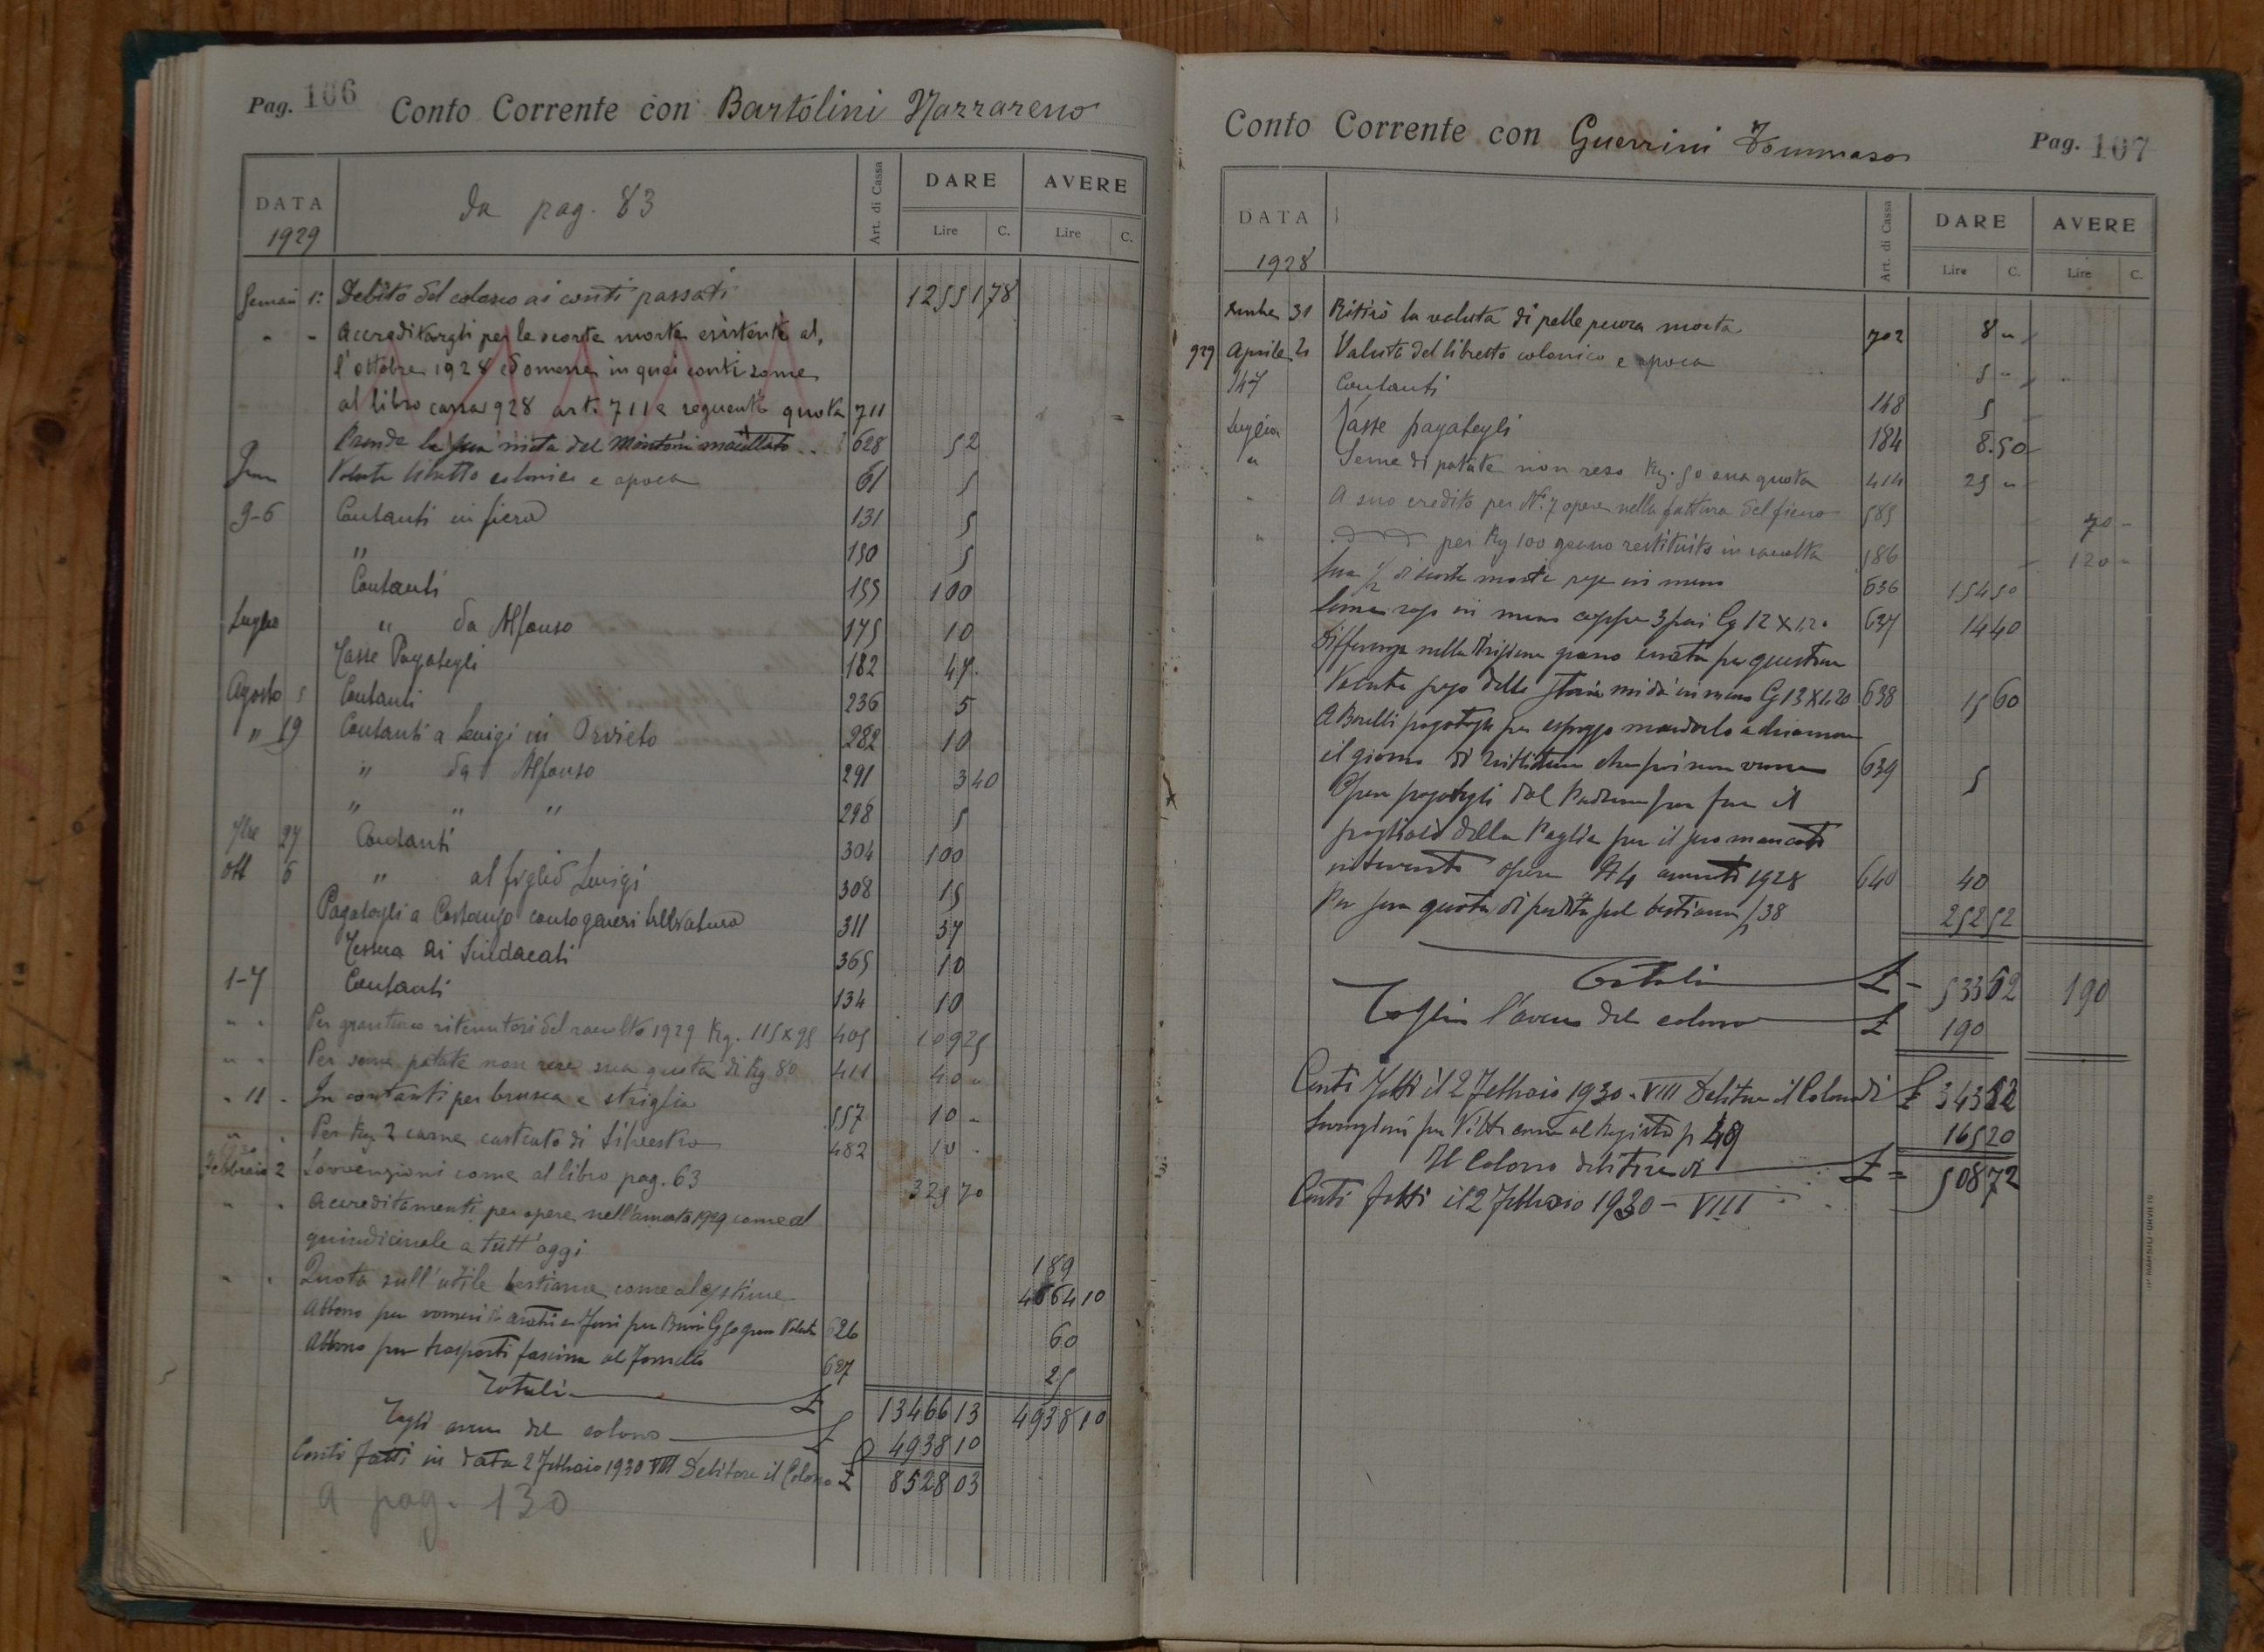 Pag. 106 Conto Corrente con Bartolini Nazzareno
DATA da pag. 83 Art. di Cassa DARE AVERE
1929 Lire C. Lire C.
Gennai 1: Debito del colono ai conti passati 12551 78
" " Accreditargli per le scorte morte esistenti al
1' ottobre 1928 ed omesse in quei conti come
al libro cassa 928 art. 711 e seguenti quota 711
Prende la sua metà del Montone macellato .. 628 52
Valuta libretto colonico e apoca 61 5
9-6 Contanti in fiera 131 5
" 150 5
Contanti 155 100
Luglio " da Alfonso 175 10
Tasse Pagategli 182 47.
Agosto 5 Contanti 236 5
" 19 Contanti a Luigi in Orvieto 282 10
" da Alfonso 291 3 40
" " " 298 5
7bre 27 Contanti 304 100
Ott 6 " al figlio Luigi 308 15
Pagatogli a Costanzo conto generi trebbiatura 311 37
Tessera ai Sindacati 365 10
1-7 Contanti 134 10
" " Per granturco ritenutosi del raccolto 1929 Kg. 115x95 405 109 25
" " Per seme patate non rese sua quota di Kg 80 411 40 "
" 11 " In contanti per brusca e striglia 557 10 -
" " Per Kg 2 carne castrato di Silvestro 482 10 -
Febbraio 2 Sovvenzioni come al libro pag. 63 325 70
" " Accreditamenti per opere nell'annata 1929 come al
quindicinale a tutt'oggi 189
" " Quota sull'utile bestiame come al 4664 10
Abbono per vomeri 626 60
Abbono per trasporti fascina al 627 25
Totali £ 13466 13 4938 10
Togli avere del colono £ 4938 10
Conti fatti in data 2 Febbraio 1930 VIII Debitore il Colono £ 8528 03
A pag. 130
Conto Corrente con Guerrini Tommaso Pag. 107
DATA Art. di Cassa DARE AVERE
1928 Lire C. Lire C.
31 Ritirò la valuta di pelle pecora morta 702 8 "
929 Aprile 21 Valuta del libretto colonico e apoca 5 "
Contanti 148 5
Luglio Tasse pagategli 184 8.50
" Seme di patate non reso Kg. 50 sua quota 414 25 "
" A suo credito per N.° 7 opere nella fattura del fieno 585 70 -
" per Kg 100 grano restituito in raccolta 586 120 "
Sua ½ di scorte morte rese in meno 636 154 50
in meno coppe 3 pari Cg 12 x 1,20 637 14 40
Differenza nella divisione grano
Valuta in meno Cg 13 x 1,20 638 15 60
A Borelli per mandarlo a chiamare
il giorno di che poi non venne 639 5
Opere pagategli dal Padrone per fare il
pagliaio della Paglia per il suo mancato
intervento opere N 4 annata 1928 640 40
Per sua quota di perdita sul bestiame p 38 252 52
Totali £ - 533 52 190
Toglie l'avere del colono £ 190
Conti fatti il 2 Febbraio 1930 - VIII Debitore il Colono di £ 343 52
Sovvenzioni per Vitto come al Registro p 48 165 20
Il Colono debitore di £ = 508 72
Conti fatti il 2 Febbraio 1930 - VIII